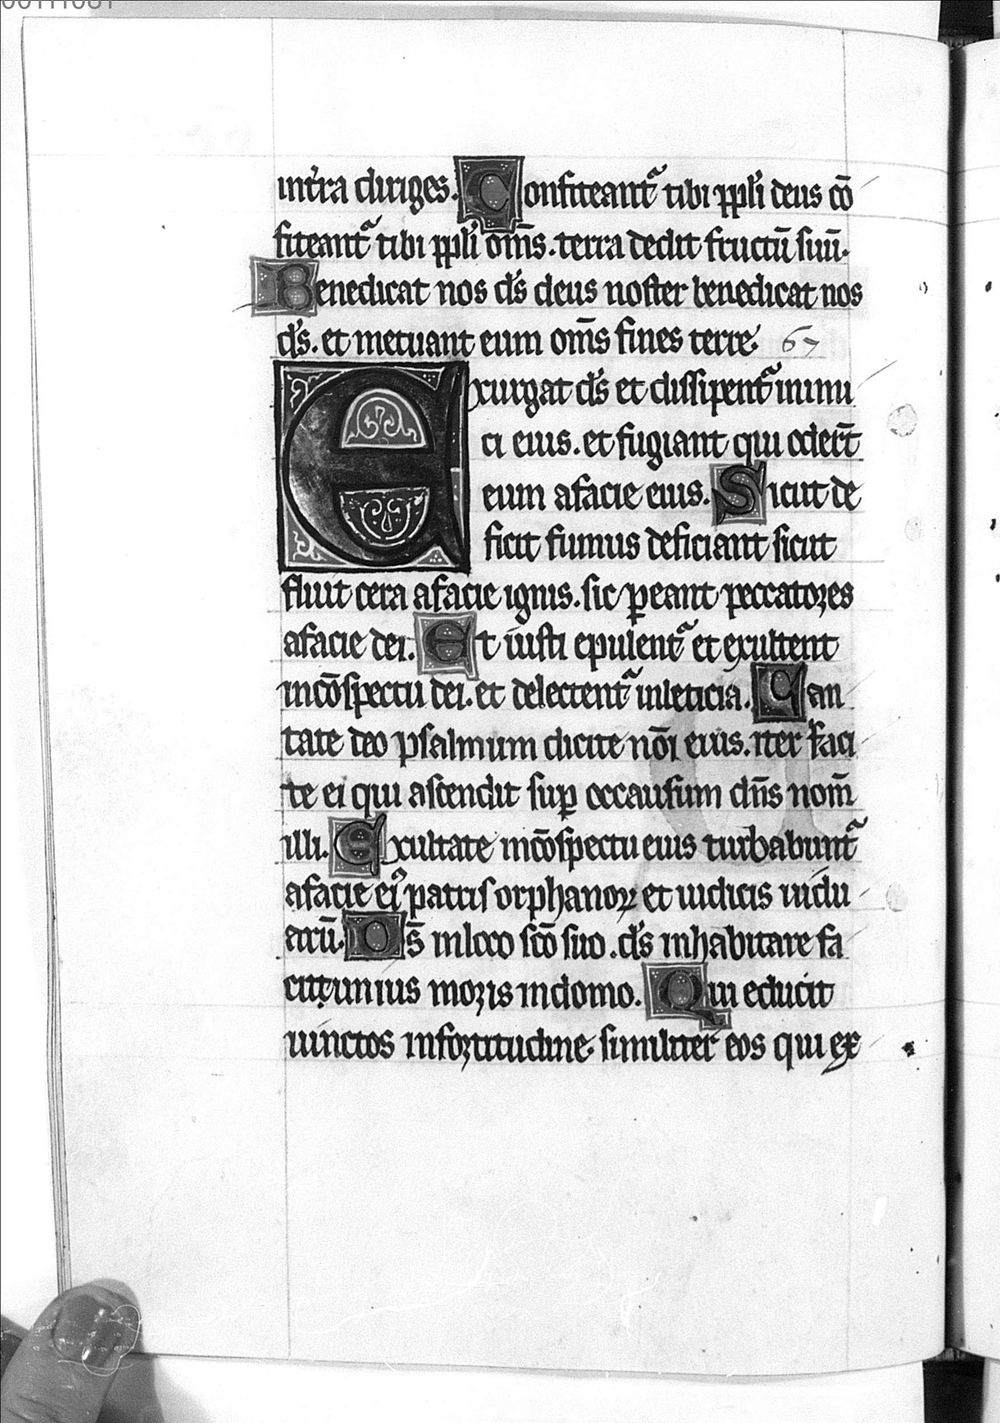 int̉ra diriges. Confiteant᷑ tibi pp̄li deus cō
fiteant᷑ tibi pp̄li om̄s. terra dedit fructū suū.
Benedicat nos ds̄ deus noster benedicat nos
ds̄. et metuant eum om̄s fines terre. 67
Exurgat ds̄ et dissipent᷑ inimi
ci eius. et fugiant qui oder̄t
eum a facie eius. Sicut de
ficit fumus deficiant sicut
fluit cera a facie ignis. sic ꝑeant peccatores
a facie dei. Et iusti epulent᷑ et exultent
in cōspectu dei. et delectent᷑ in leticia. Can
tate deo psalmum dicite nōi eius. iter faci
te ei qui ascendit suꝑ occausum dn̄s nom̄
illi. Exultate in cōspectu eius turbabunt᷑
a facie eiꝰ patris orphanoꝝ et iudicis uidu
arū. Ds̄ in loco scō suo. ds̄ inhabitare fa
cit unius moris in domo. Qui educit
uinctos in fortitudine similiter eos qui ex